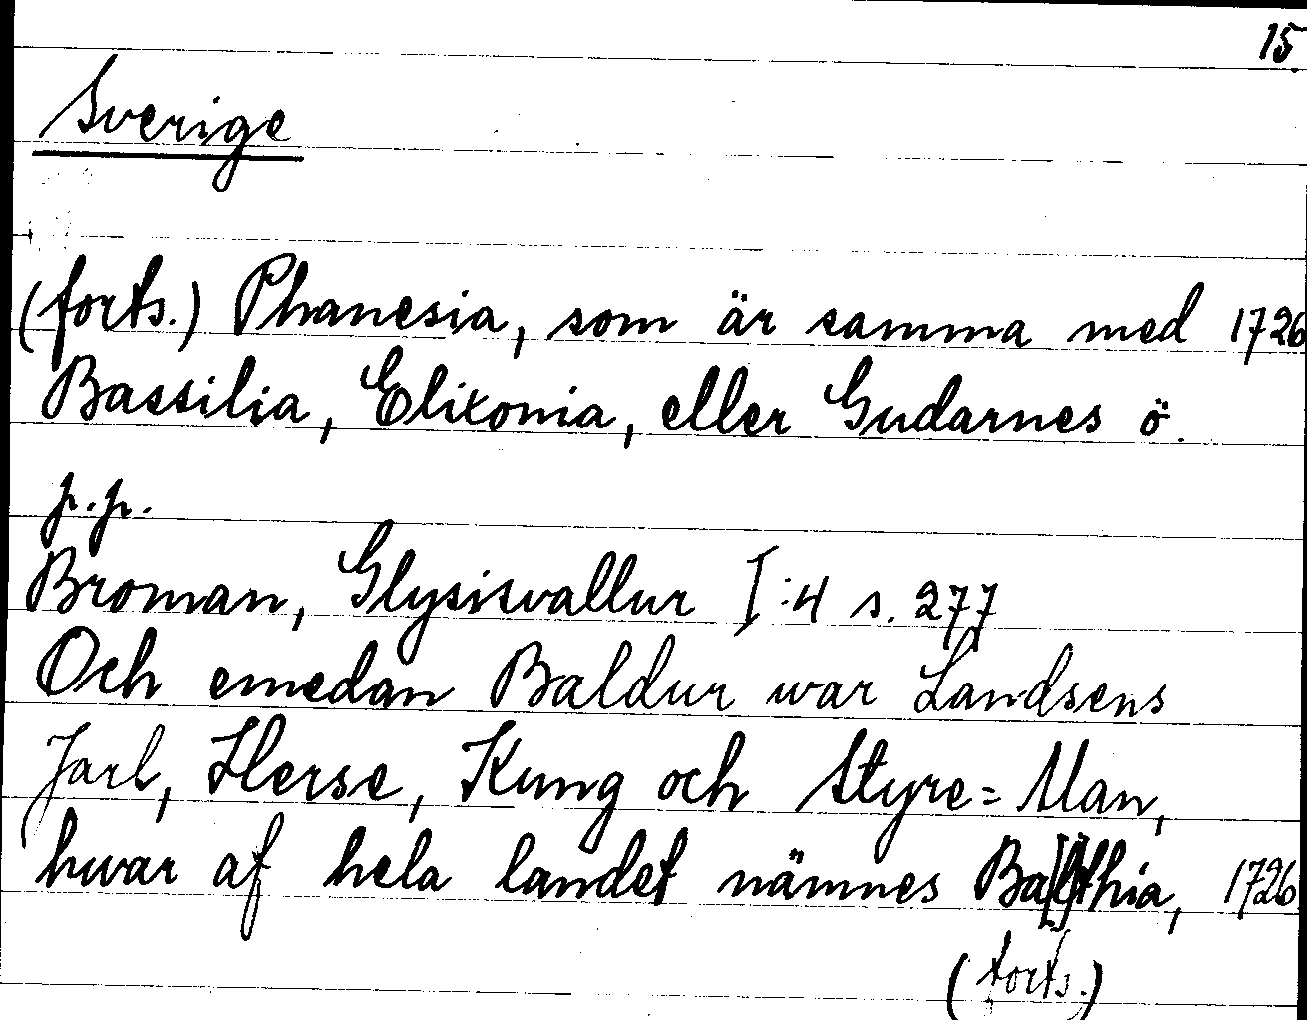 15.
Sverige
(forts.) Phanesia, som är samma med 1726
Bassilia, Elixonia, eller Gudarnes ö.
p.p.
Broman, Glysisvallur I:4 s. 277
Och emedan Baldur war Landsens
Jarl, Herse, Kung och Styre=Man,
hwar af hela landet nämnes Ba[l]thia, 1726
(forts.)